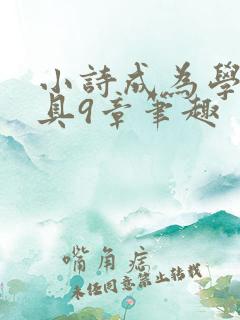 小詩成為學
具9章筆趣
嘴角痣
未经同意禁止转载